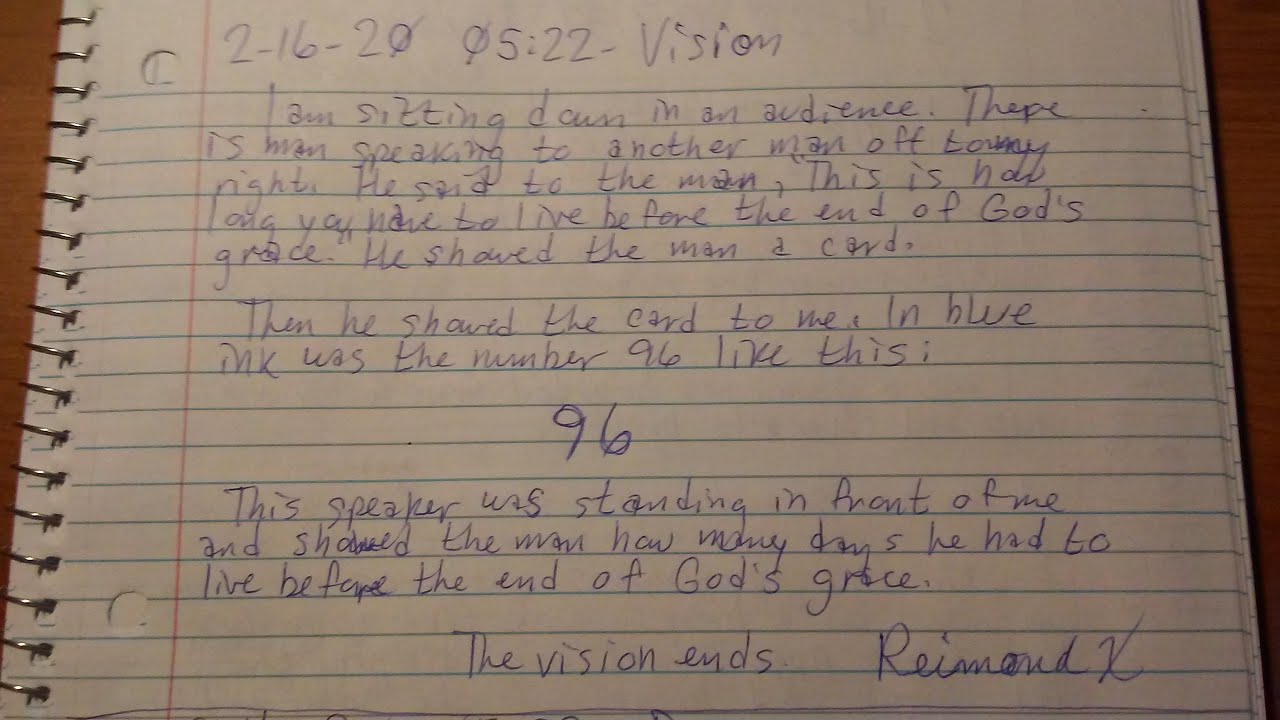 2-16-20 05:22- Vision
I am sitting down in an audience. There
is man speaking to another man off to my
right. He said to the man, "This is how
long you have to live before the end of God's
grace." He showed the man a card.
Then he showed the card to me. In blue
ink was the number 96 like this:
96
This speaker was standing in front of me
and showed the man how many days he had to
live before the end of God's grace.
The vision ends. Reimond X